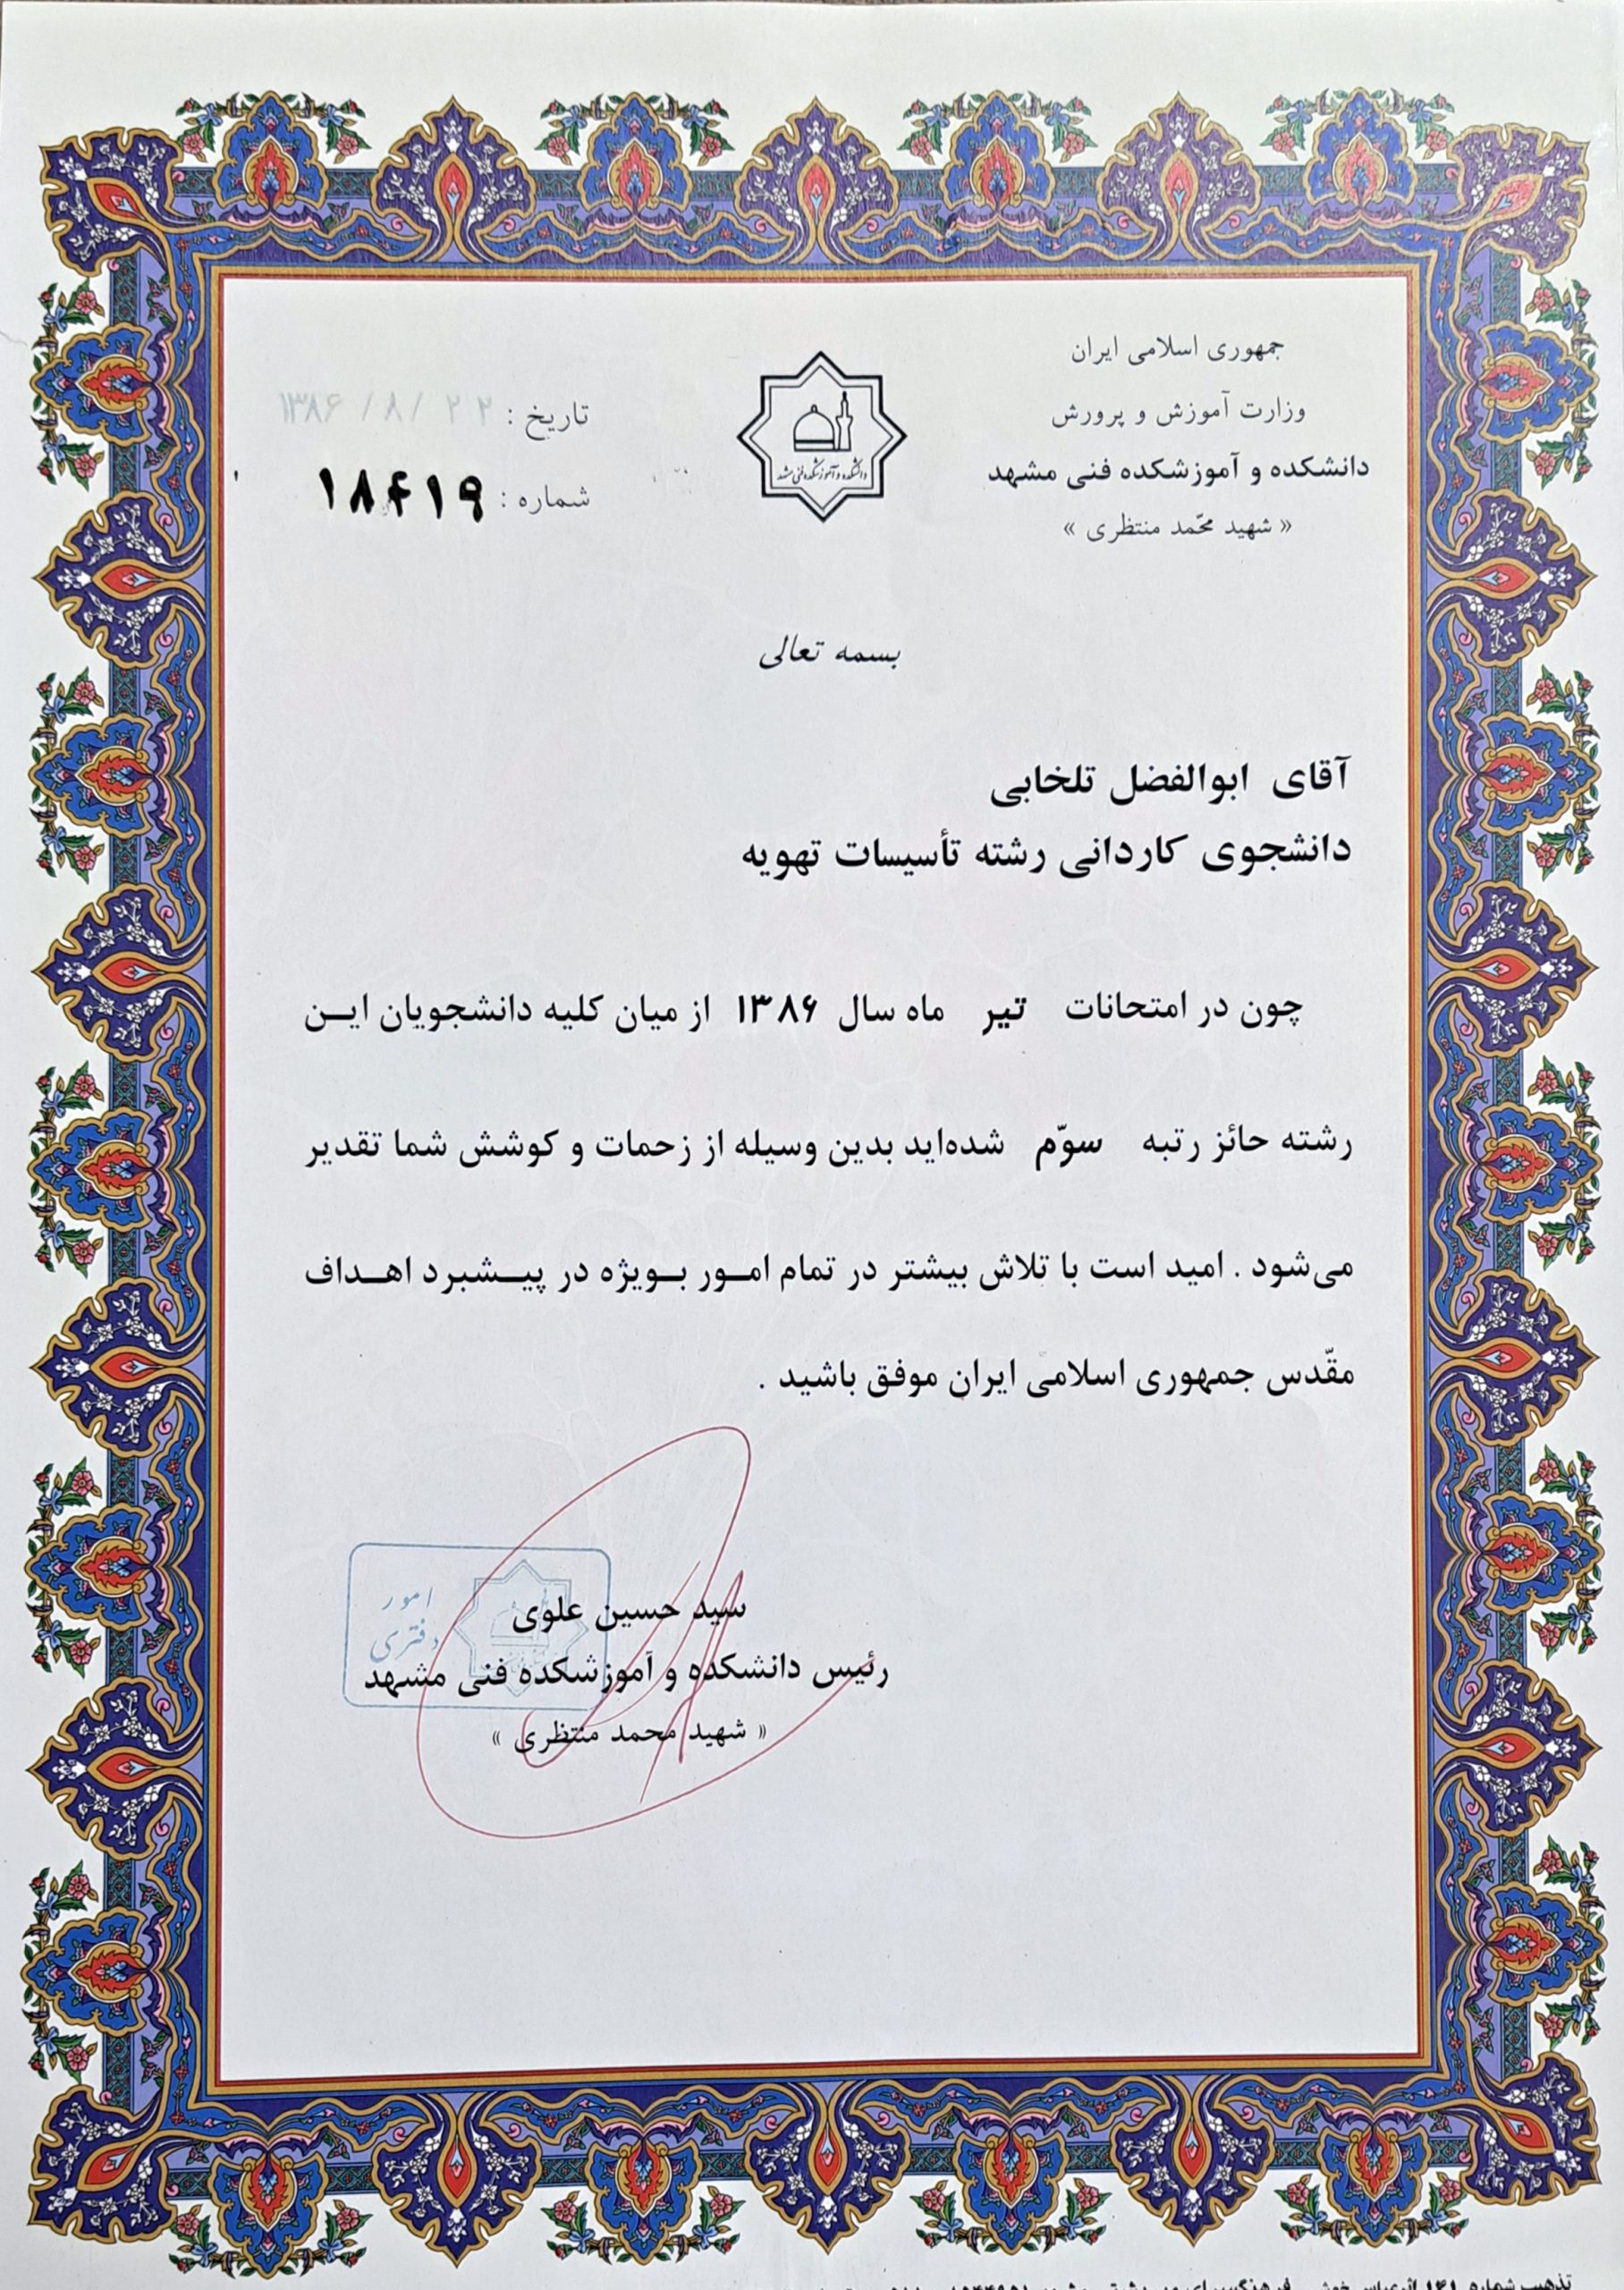 جمهوری اسلامی ایران
وزارت آموزش و پرورش
دانشکده و آموزشکده فنی مشهد
« شهید محّمد منتظری »
دانشکده و آموزشکده فنی مشهد
تاریخ : ۱۳۸۶ / ۸ / ۲۲
شماره : ۱۸۴۱۹
بسمه تعالی
آقای ابوالفضل تلخابی
دانشجوی کاردانی رشته تأسیسات تهویه
چون در امتحانات تیر ماه سال ۱۳۸۶ از میان کلیه دانشجویان ایـن
رشته حائز رتبه سوّم شده‌اید بدین وسیله از زحمات و کوشش شما تقدیر
می‌شود . امید است با تلاش بیشتر در تمام امـور بـویژه در پیـشبرد اهـداف
مقّدس جمهوری اسلامی ایران موفق باشید .
امور
دفتری
سید حسین علوی
رئیس دانشکده و آموزشکده فنی مشهد
« شهید محمد منتظری »